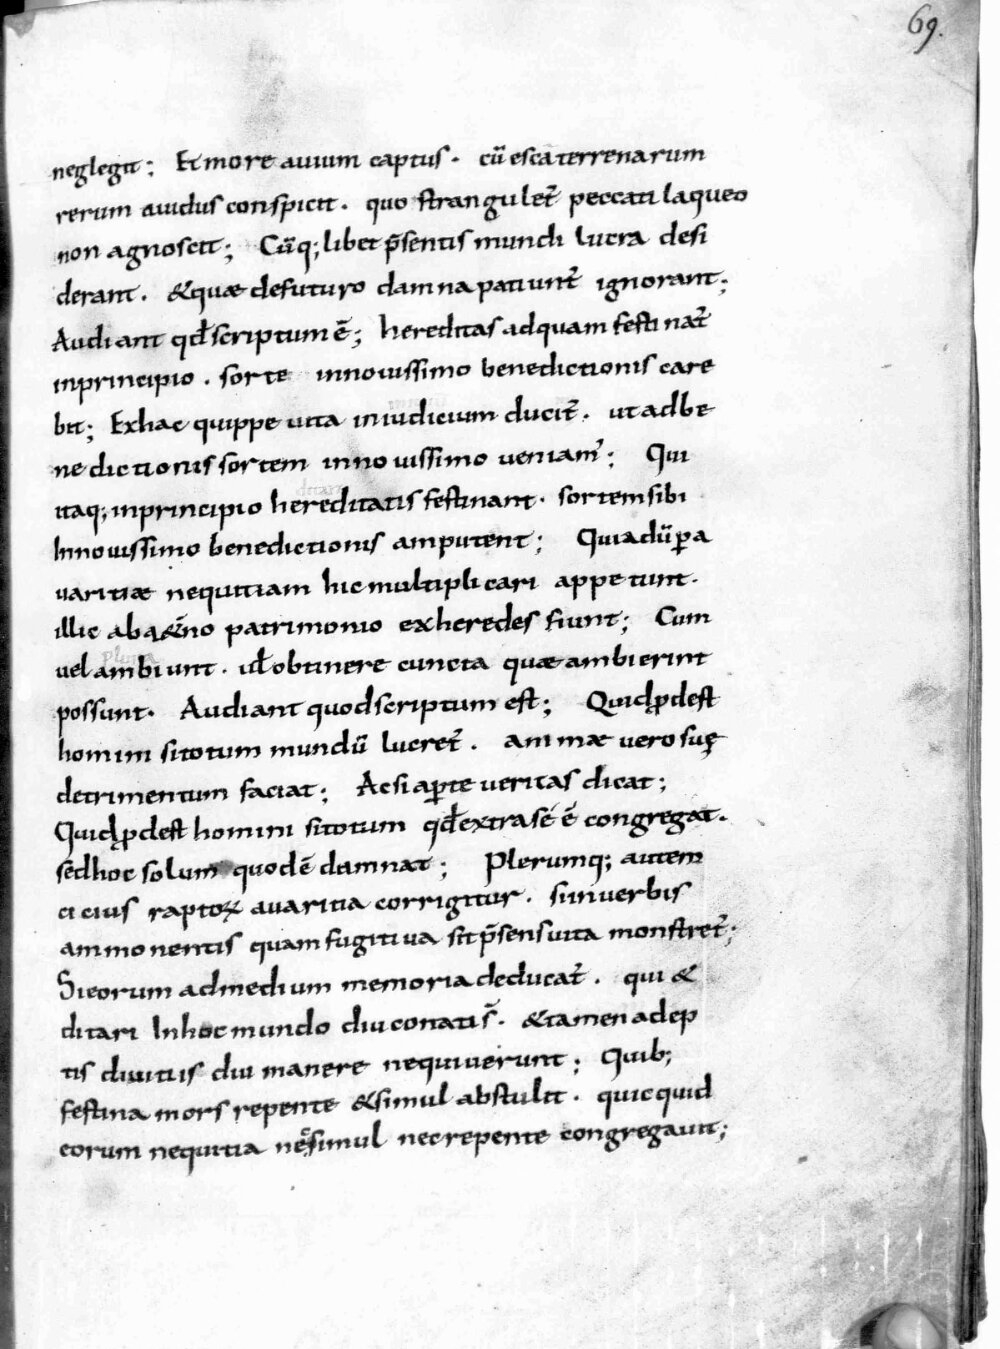 69.
neglegit; Et more auium captus. cū esca terrenarum
rerum auidus conspicit. quo strangulet̃ peccati laqueo
non agnoscit; Cūq; libet p̄sentis mundi lucra desi
derant. & quæ de futuro damna patiunt̃ ignorant;
Audiant qđ scriptum ē; hereditas ad quam festinat̃
in principio. sorte in nouissimo benedictionis care
bit; Ex hac quippe uita in iudicium ducit̃. ut ad be
nedictionis sortem in nouissimo ueniam̃; Qui
itaq; in principio hereditatis festinant. sortem sibi
In nouissimo benedictionis amputent; Quia dū p̱ a
uaritiæ nequitiam hic multiplicari appetunt.
illic ab æt̃no patrimonio exheredes fiunt; Cum
uel ambiunt. uł obtinere cuncta quæ ambierint
possunt. Audiant quod scriptum est; Quid ꝓdest
homini si totum mundū lucret̃. animæ uero suę
detrimentum faciat; Ac si aꝑte ueritas dicat;
Quid ꝓdest homini si totum qđ extra se ē congregat.
sed hoc solum quod ē damnat; Plerumq; autem
cicius raptoꝝ auaritia corrigitur. si in uerbis
ammonentis quam fugitiua sit p̄sens uita monstret̃;
Si eorum ad medium memoria deducat̃. qui &
ditari In hoc mundo diu conati s̄. & tamen adep
tis diuitiis diu manere nequiuerunt; Quib;
festina mors repente & simul abstulit. quicquid
eorum nequitia nec simul nec repente congregauit;